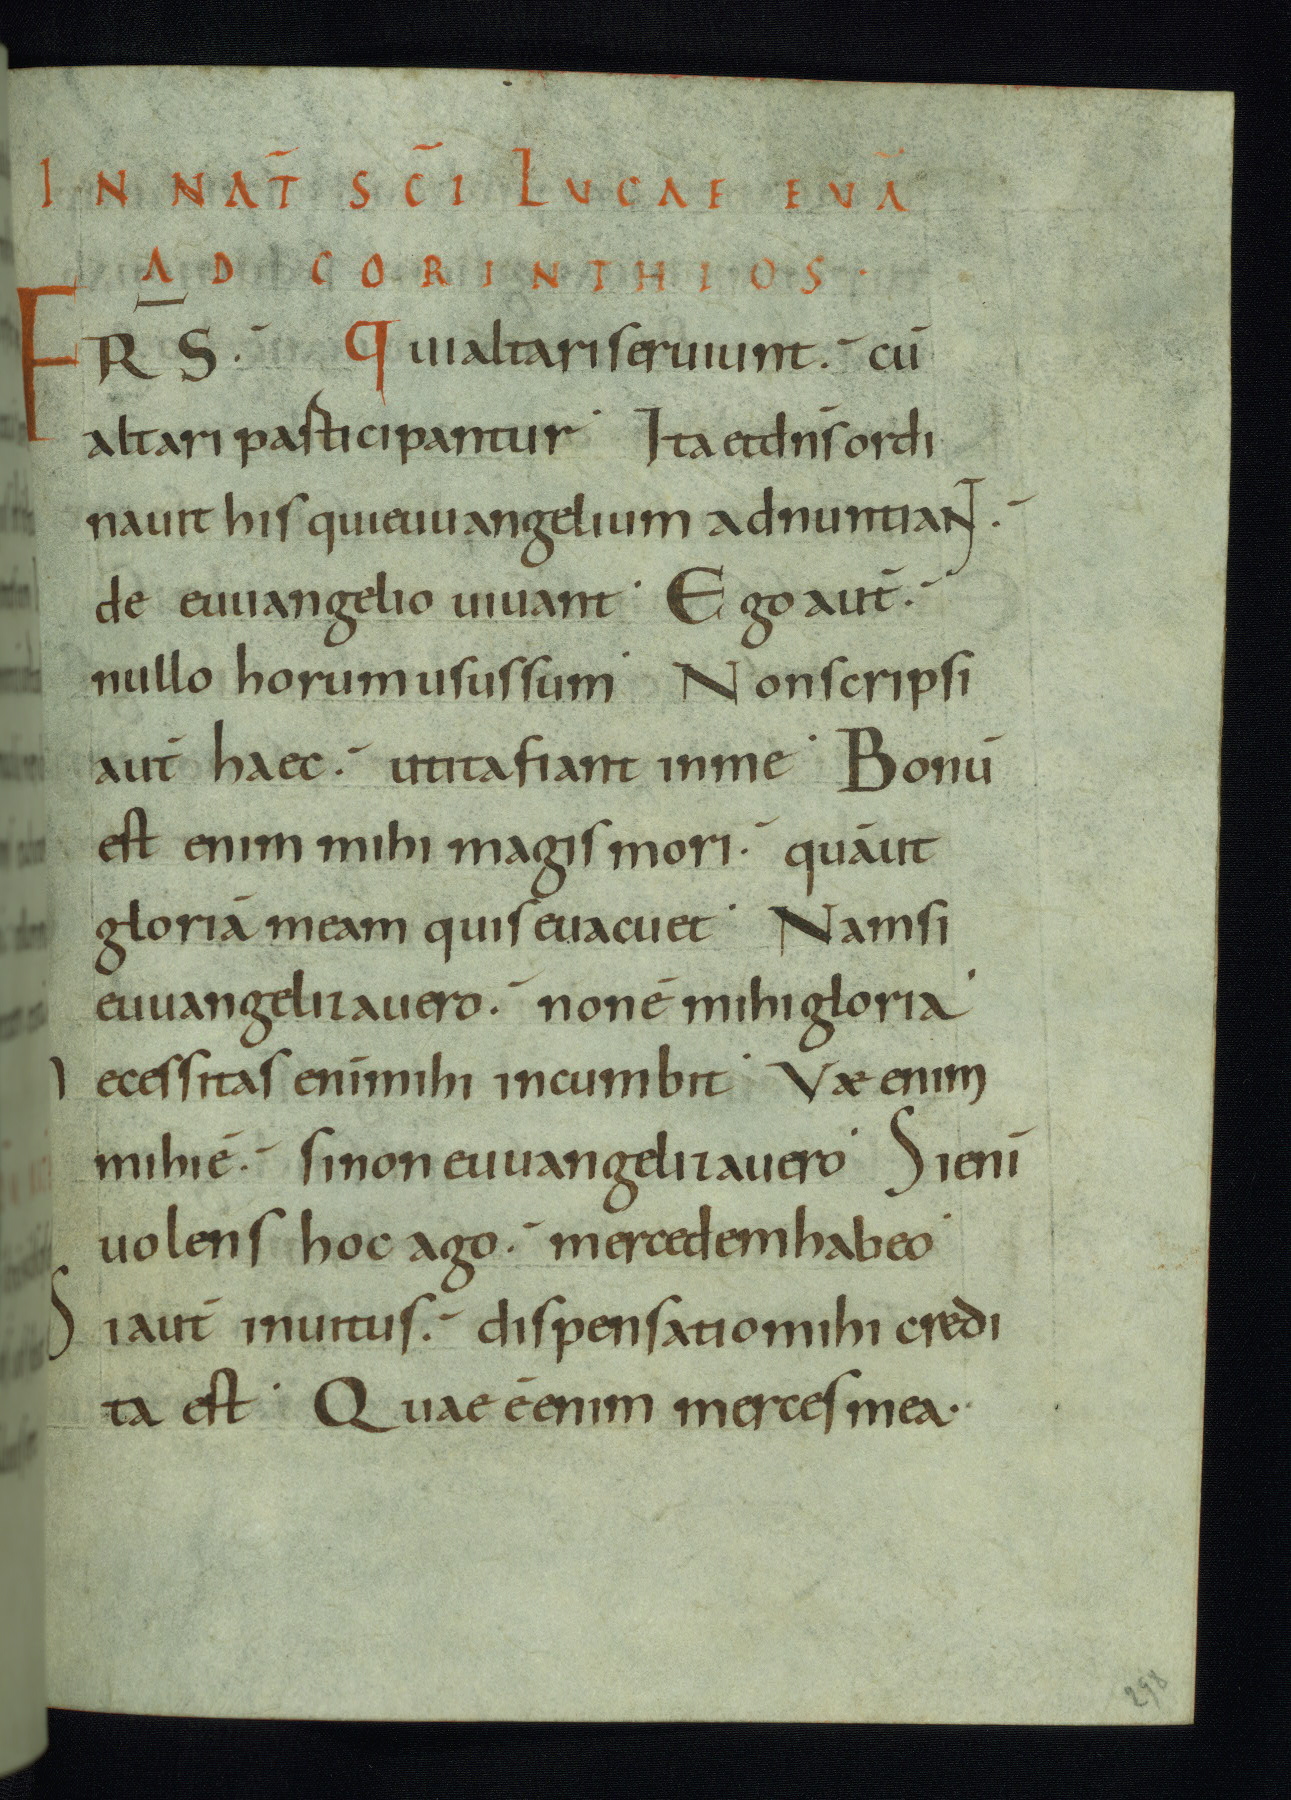 IN NAT̄ SC̄I LUCAE EUĀ
AD CORINTHIOS.
FR̄S. Qui altari seruiunt. cū
altari participantur. Ita et dn̄s ordi
nauit his qui euuangelium adnuntiant.
de euuangelio uiuant. Ego aut̄.
nullo horum usus sum. Non scripsi
aut̄ haec. ut ita fiant in me. Bonū
est enim mihi magis mori. quā ut
gloriā meam quis euacuet. Nam si
euuangelizauero. non ē mihi gloria.
necessitas enī mihi incumbit. Væ enim
mihi ē. si non euuangelizauero. Si enī
uolens hoc ago. mercedem habeo.
Si aut̄ inuitus. dispensatio mihi credi
ta est. Quae ē enim merces mea.
298